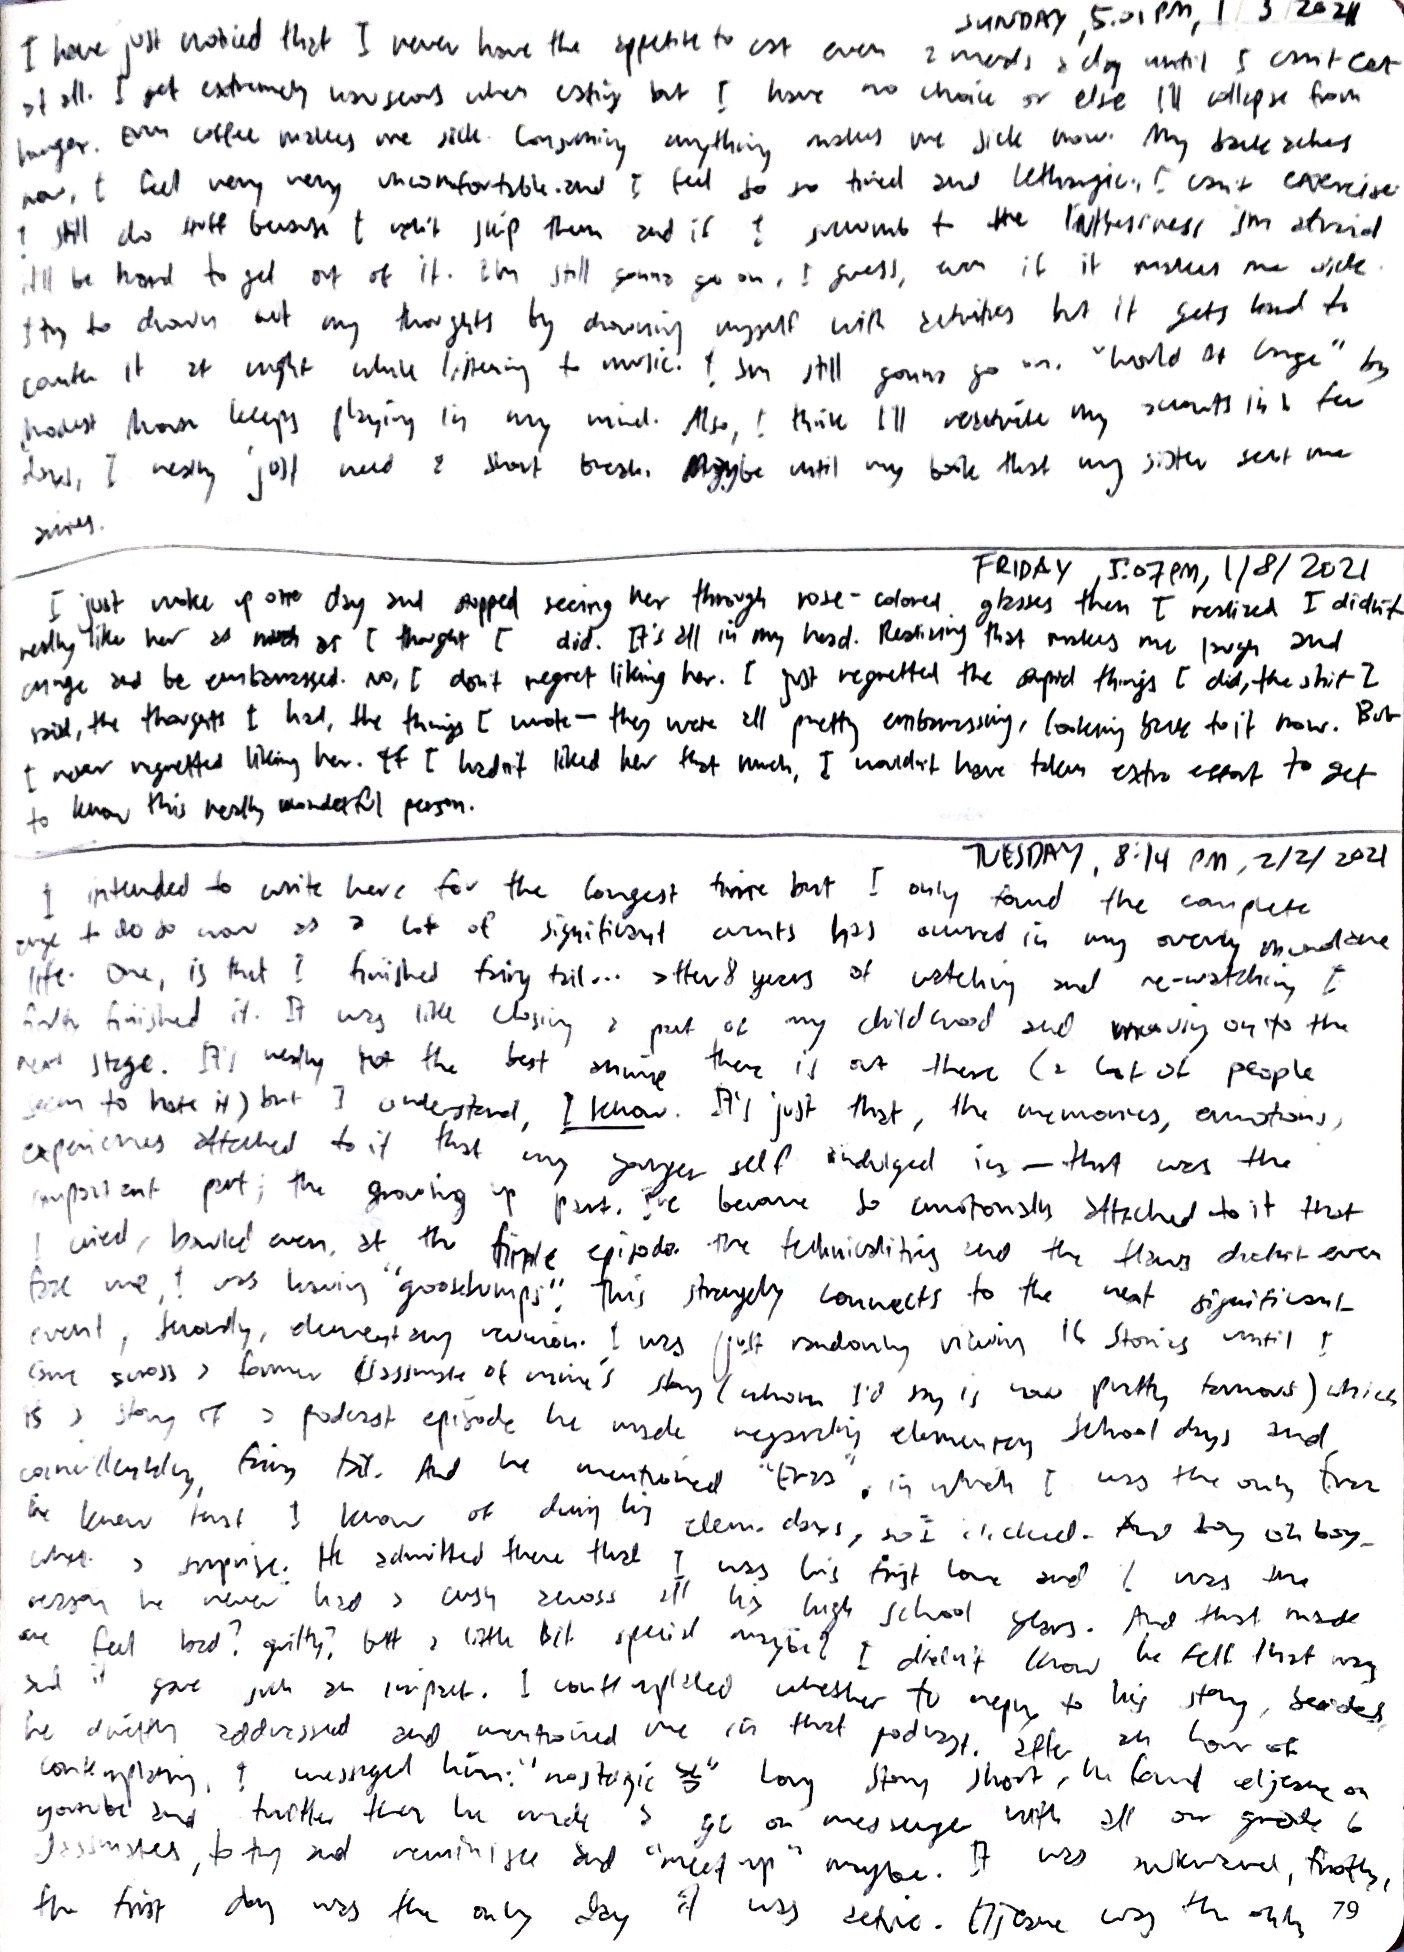 SUNDAY, 5:01 PM, 1/3/2021
I have just noticed that I never have the appetite to eat even 2 meals a day until I can't eat
at all. I get extremely nauseous when eating but I have no choice or else I'll collapse from
hunger. Even coffee makes me sick. Consuming anything makes me sick now. My back aches
now, I feel very very uncomfortable and I feel so so tired and lethargic, I can't exercise
I still do stuff because I can't skip them and if I succumb to the I'm afraid
it'll be hard to get out of it. I'm still gonna go on, I guess, even if it makes me sick.
I try to drown out my thoughts by drowning myself with activities but it gets hard to
counter it at night while listening to music. I I'm still gonna go on. "World At Large" by
modest mouse keeps playing in my mind. Also, I think I'll reactivate my accounts in a few
days, I really just need a short break. Maybe until my book that my sister sent me
arrives.
FRIDAY, 5:07 PM, 1/8/2021
I just woke up one day and stopped seeing her through rose-colored glasses then I realized I didn't
really like her as much as I thought I did. It's all in my head. Realizing that makes me laugh and
cringe and be embarrassed. No, I don't regret liking her. I just regretted the stupid things I did, the shit I
said, the thoughts I had, the things I wrote — they were all pretty embarrassing, looking back to it now. But
I never regretted liking her. If I hadn't liked her that much, I wouldn't have taken extra effort to get
to know this really wonderful person.
TUESDAY, 8:14 PM, 2/2/2021
I intended to write here for the longest time but I only found the complete
urge to do so now as a lot of significant events has occured in my overly mundane
life. One, is that I finished fairy tail... after 8 years of watching and re-watching I
finished it. It was like closing a part of my childhood and moving on to the
next stage. It's really not the best anime there is out there (a lot of people
seem to hate it) but I understand, I know. It's just that, the memories, emotions,
experiences attached to it that my younger self indulged in — that was the
important part; the growing up part. I've become so emotionally attached to it that
I cried, bawled even, at the finale episode. the technicalities and the flaws didn't even
faze me, I was having "goosebumps". This strangely connects to the next significant
event, secondly, elementary reunion. I was just randomly viewing IG stories until I
came across a former classmate of mine's story (whom I'd say is now pretty famous) which
is a story of a podcast episode he made regarding elementary school days and,
coincidentally, fairy tail. And he mentioned "Erza", in which I was the only Erza
he knew that I know of during his elem. days, so I clicked. And boy oh boy-
what a surprise. He admitted there that I was his first love and I was the
reason he never had a crush across all his high school years. And that made
me feel bad? guilty? but a little bit special maybe? I didn't know he felt that way
and it gave such an impact. I contemplated whether to reply to his story, besides,
he directly addressed and mentioned me in that podcast. after an hour of
contemplating, I messaged him: "nostalgic" Long story short, he found eljeane on
youtube and twitter then he made a gc on messenger with all our grade 6
classmates, to try and reminisce and "meet up" maybe. It was awkward, firstly,
the first day was the only day it was active. Eljeane was the only
79